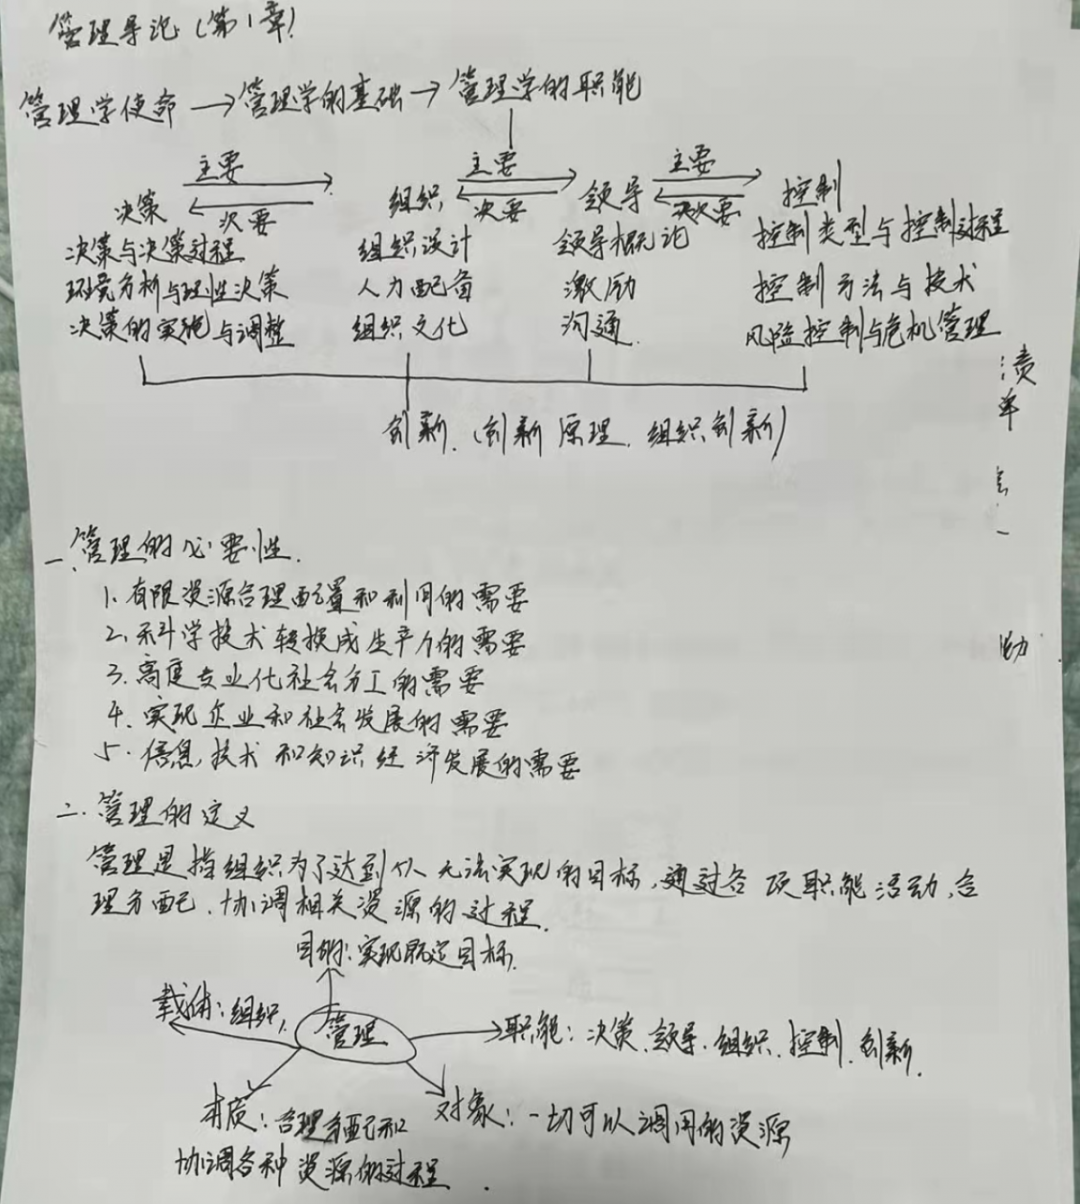 管理导论(第1章)
管理学使命→管理学的基础→管理学的职能
主要 主要 主要
决策 次要 组织 次要 领导 次要 控制
决策与决策过程 组织设计 领导概论 控制类型与控制过程
环境分析与理性决策 人力配备 激励 控制方法与技术
决策的实施与调整 组织文化 沟通 风险控制与危机管理
创新.(创新原理.组织创新)
一.管理的必要性.
1.有限资源合理配置和利用的需要
2.科学技术转换成生产力的需要
3.高度专业化社会分工的需要
4.实现企业和社会发展的需要
5.信息,技术和知识经济发展的需要
二.管理的定义
管理是指组织为了达到个人无法实现的目标,通过各项职能活动,合
理分配.协调相关资源的过程.
目的:实现既定目标.
载体:组织.
管理
职能:决策.领导.组织.控制.创新.
本质:合理分配和
协调各种资源的过程.
对象:一切可以调用的资源